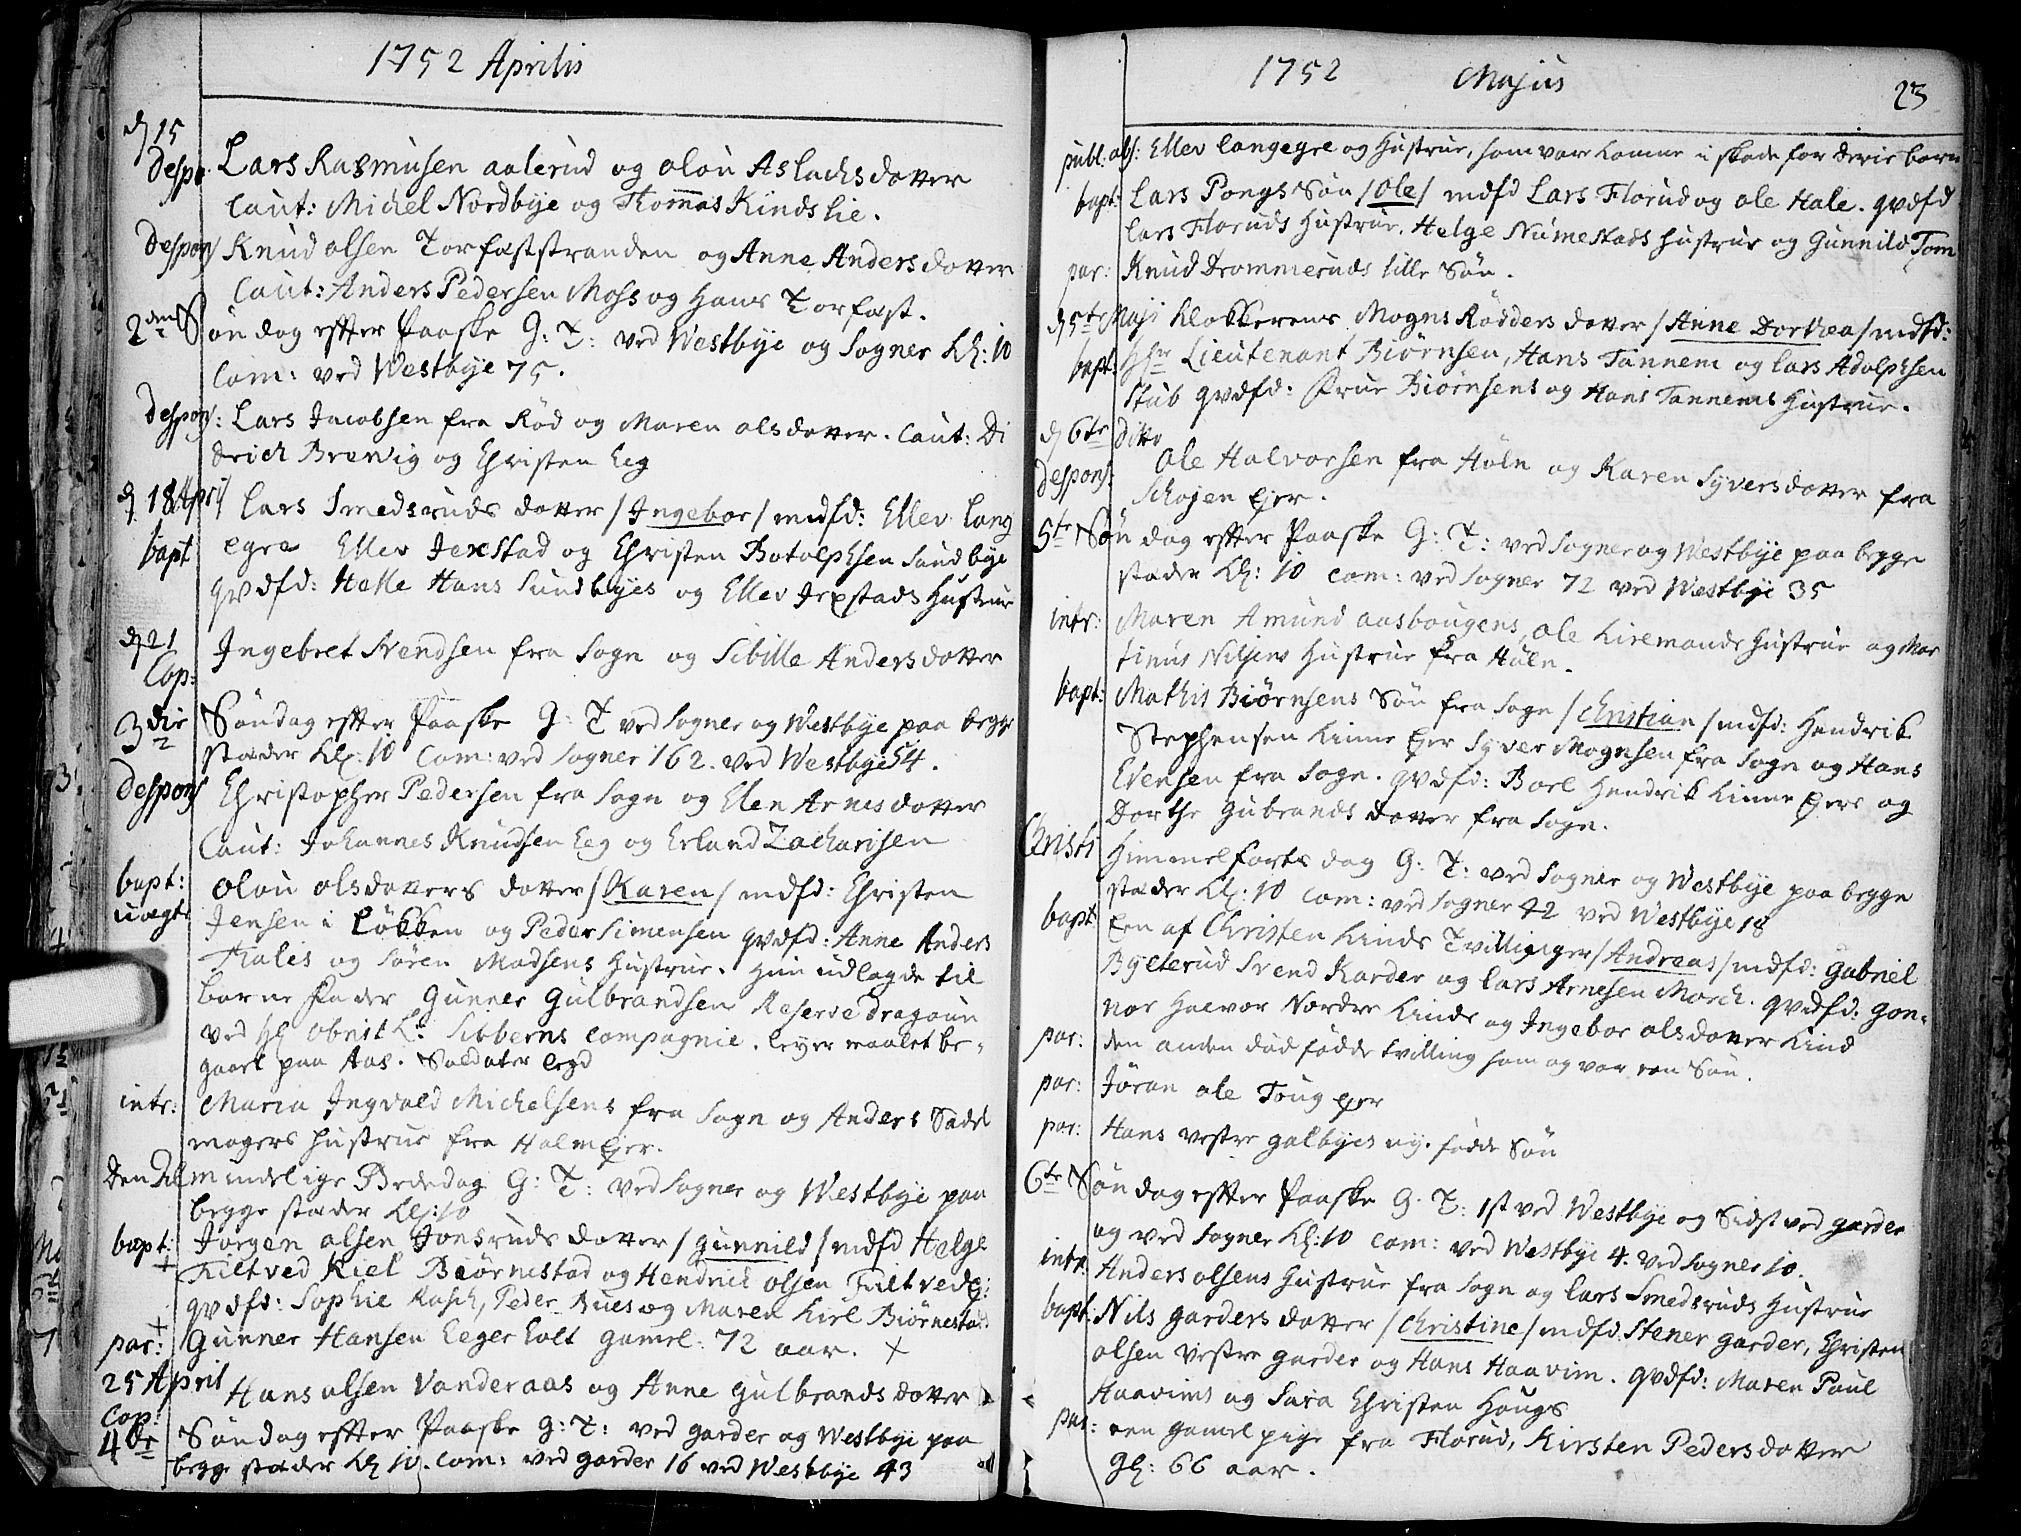 1752 Aprilis
d 15
despo: Lars Rasmusen aalerud og oloü Aslachsdotter
Caut: Michel Nordbÿe og Thommas Kindslie.
Despons Knud olsen Torfaststranden og Anne Andersdotter
Caut: Anders Pedersen Moss og Hans Torfast.
2den Søndag effter Paaske G: T: ved Westbÿe og Sogner Kl: 10
Com: ved Westbÿe 75.
despons: Lars Jacobsen fra Rød og Maren olsdotter. Caut: Di
drich Brewig og Christen Eeg
d. 18 April Lars Smedsruds dotter /Ingebor/ mdfd: Ellev Lang
bapt egre Ellev Jexstad og Christen Botolphsen Sundbÿe
qvdfd: Helle Hans Sundbÿes og Ellev Jexstads Hustrue
d 21 Ingebret Svendsen fra Sogn og Sibille Andersdotter
Cop:
3die Søndag effter Paaske G: T ved Sogner og Westbÿe paa begge
stæder Kl: 10 Com: ved Sogner 162. ved Westbÿe 54.
Despons Christopher Pedersen fra Sogn og Elen Arnesdotter
Caut: Johannes Knudsen Eeg og Erland Zacharisen
bapt: oloü olsdotters dotter /Karen/ mdfd: Christen
uægte Jensen i Løkken og Peder Simensen qvdfd: Anne Anders
Thales og Søren Madsens Hustrue. Hun udlagde til
barne Fader Gunner Gulbrandsen Reserve dragoun
ved Hr Obrist Lt Sibberns Compagnie. Leyer maalet be-
gaaet paa Aas. Soldater legd
intr: Maria Ingvald Michelsens fra Sogn og Anders Sadel
magers Hustrue fra Holm Eyer.
Den Almindelige Bededag G: T: ved Sogner og Westbÿe paa
begge stæder Kl: 10
bapt: Jørgen olsen Jonsruds dotter /gunnild/ mdfd Helge
Filtved Kiel Biørnestad og Hendrick olsen FiltvedE:
qvdfd: Sophie Rasch, Peder Bues og Maren Kiel Biørnestads
par: Gunner Hansen Eeger holt gamel: 72 aar.
25 April Hans olsen Vanderaas og Anne gulbrandsdotter
Cop:
4de Søndag effter Paaske G: T: ved garder og Westbÿe paa
begge stæder Kl 10. Com: ved garder 16 ved Westbÿe 43
1752 Majus 23
publ: abs: Ellev Langegre og Hustrue, som vare komne i skade for deris barn
bapt: Lars Pongs Søn /Ole/ mdfd Lars Florud og ole Hale. qvdfd
Lars Floruds Hustrue. Helge Numestads Hustrue og Gunnild Tom
par: Knud Drommeruds lille Søn.
d 5te Maji Klokkerens Mogns Rødders dotter /Anne Dorthea/ mdfd:
bapt: Hr Lieutenant Biørnsen, Hans Tannem og Lars Adolphsen
Stub qvdfd: Frue Biørnsens og Hans Tannems Hustrue.
d 6te Ditto
Despons: Ole Halvorsen fra Høln og Karen Syversdotter fra
Schojen Eyer.
5te Søndag effter Paaske G: T: ved Sogner og Westbÿe paa begge
stæder Kl: 10 Com: ved Sogner 72 ved Westbÿe 35
intr: Maren Amund aasbougens, ole Kiremands Hustrue og Mar
tinus Nilsens Hustrue fra Høln.
bapt: Mathis Biørnsens Søn fra Sogn /Christian/ mdfd: Hendrick
Stephensen Kinne Eyer Syver Mognsen fra Sogn og Hans
Evensen fra Sogn. qvdfd: Boel Hendrik Kinne Eyers og
Dorthe Gubrands dotter fra Sogn.
Christi Himmelfarts dag G: T: ved Sogner og Westbÿe paa begge
stæder Kl: 10 Com: ved Sogner 42 ved Westbÿe 18
bapt Een af Christen Kinds Tvillinger /Andreas/ mdfd: Gabriel
Bylterud Svend Karder og Lars Arnesen Morch. qvdfd: Gon-
nor Halvor Nordre Kinds og Ingebor olsdotter Kind
par: den anden dødfødde tvilling som og var een Søn.
par: Jøran ole Toug Eyer
par: Hans Vestre galbÿes ny. fødde Søn
6te Søndag effter Paaske G: T: 1st ved Westbÿe og Sidst ved garder
og ved Sogner Kl: 10 Com: ved Westbÿe 4. ved Sogner 10.
intr. Anders olsens Hustrue fra Sogn og Lars Smedsruds Hustrue
bapt: Nils Garders dotter /Christine/ mdfd. Stener garder, Christen
olsen Vestre garder og Hans Haavim. qvdfd: Maren Poul
Haavims og Sara Christen Hougs
par: een gamel pige fra Florud, Kirsten Pedersdotter
gl: 66 aar.